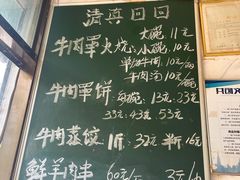 清真回回
牛肉罩火烧: 大碗: 11元
小碗: 10元
单加牛肉 10元/
牛肉汤: 10元/
牛肉罩饼 每碗: 13元. 23元
33元. 43元 53元
牛肉蒸饺 1斤: 32元 半斤 16元
鲜羊肉串 60元/ 3元/